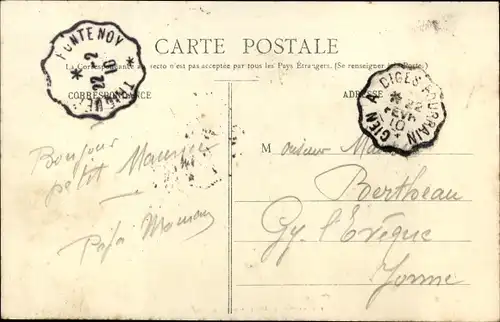 FONTENOY
22-2
10
CARTE POSTALE
La Correspondance au recto n'est pas acceptée par tous les Pays Étrangers. (Se renseigner à la Poste)
CORRESPONDANCE
ADRESSE
GIEN A
22
FEVR
10
Bonjour
petit Maurice
Papa Maman
Monsieur
Bertheau
Gy l'Evêque
Yonne